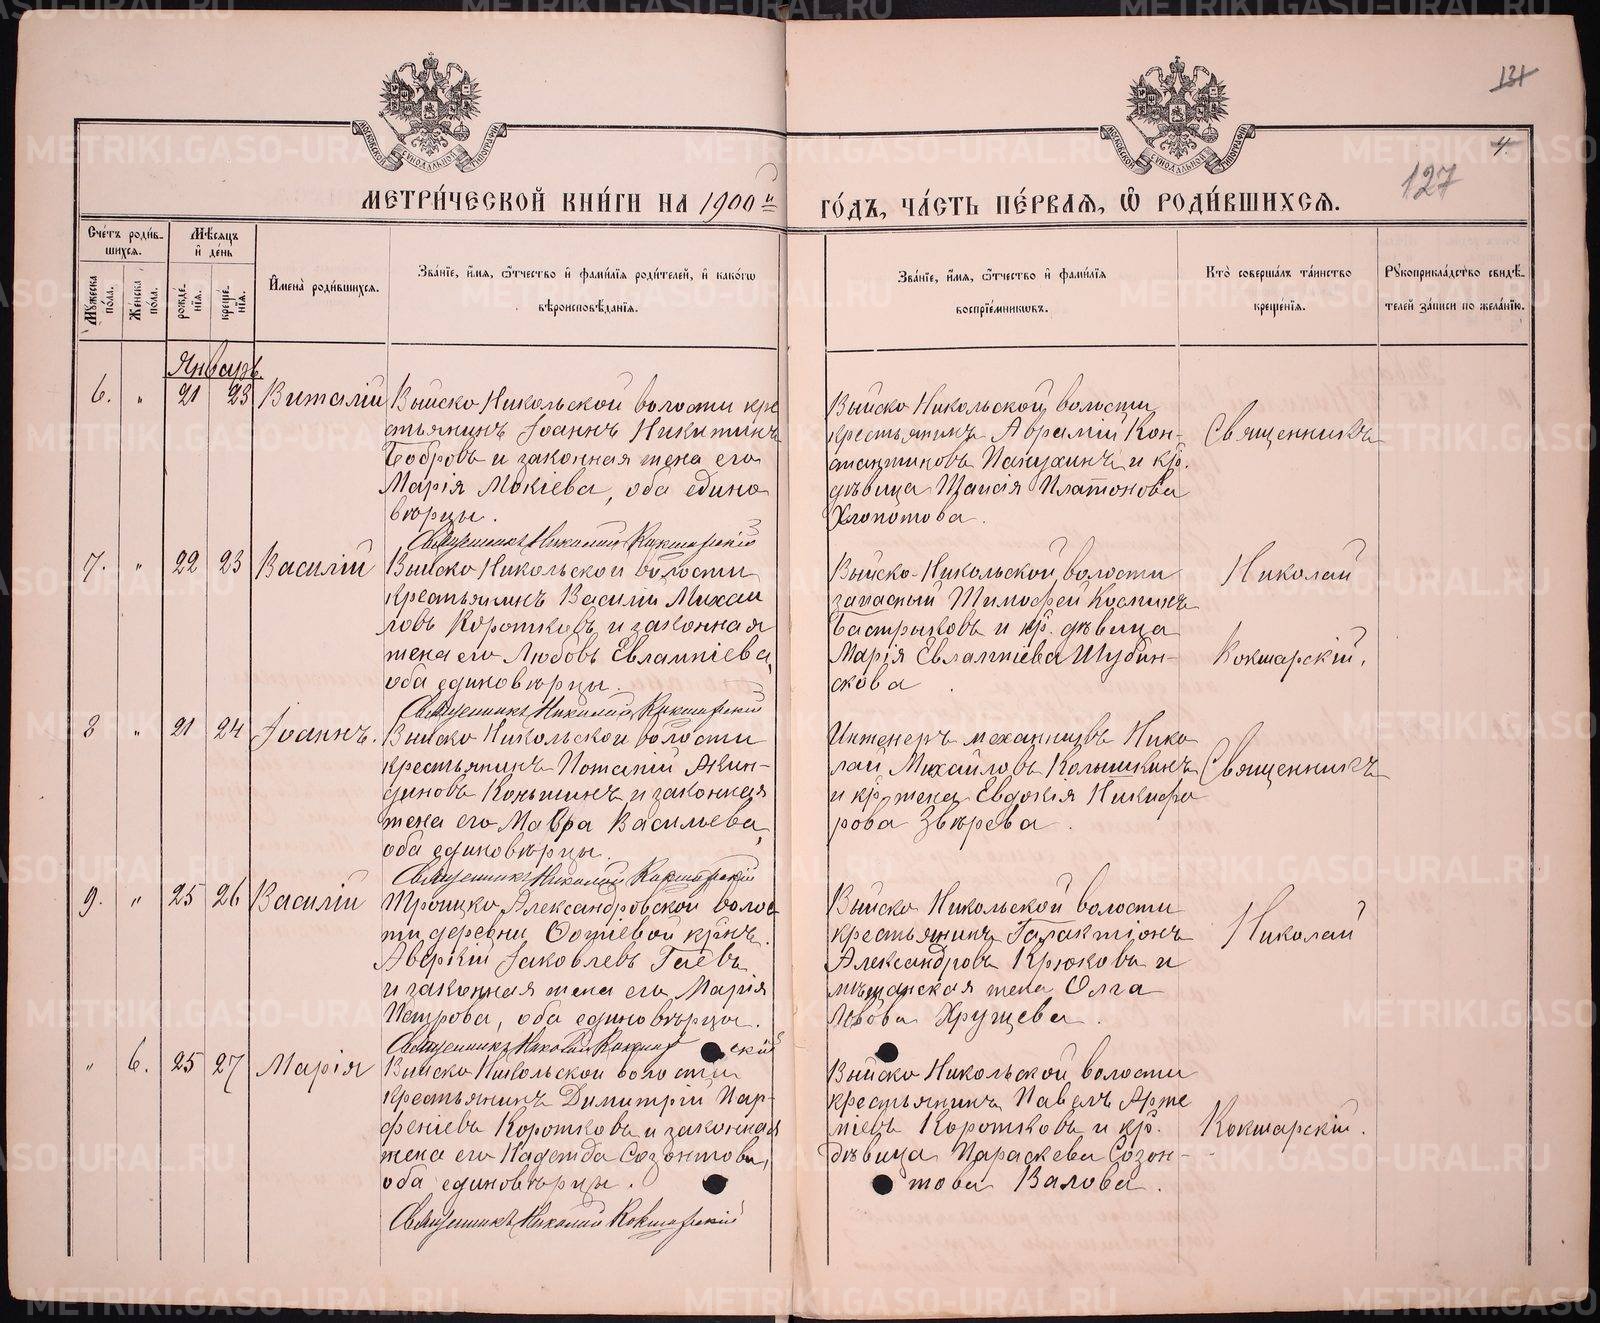 131
4.
127
МЕТРИ́ЧЕСКОЙ КНИ́ГИ НА 1900й ГО́ДЪ, ЧА́СТЬ ПЕ́РВАЯ, Ѽ РОДИ́ВШИХСЯ.
МОСКОВСКОЙ СѴНОДАЛЬНОЙ ТИПОГРАФІИ
МОСКОВСКОЙ СѴНОДАЛЬНОЙ ТИПОГРАФІИ
Сче́тъ роди́вшихся.
Мѣ́сяцъ и де́нь
Му́жеска по́ла.
Же́нска по́ла.
рожде́нїя.
креще́нїя.
Имена̀ роди́вшихся.
Зва́нїе, и́мя, ѻ҆́тчество и фами́лїя роди́телей, и како́гѡ вѣроисповѣ́данїя.
Зва́нїе, и́мя, ѻ҆́тчество и фами́лїя воспрїе́мниковъ.
Кто̀ соверша́лъ та́инство креще́нїя.
Рукоприкла́дство свидѣ́телей за́писи по жела́нїю.
Январь.
6. " 21 23 Виталій
Выйско Никольской волости кре
стьянинъ Іоаннъ Никитинъ
Бобровъ и законная жена его
Марія Мокіева, оба едино
вѣрцы.
Священникъ Николай Кокшарскій
Выйско Никольской волости
крестьянинъ Аврамій Кон-
стантиновъ и кр.
дѣвица Таисія Платонова
Хлопотова.
Священникъ
7. " 22 23 Василій
Выйско Никольской волости
крестьянинъ Василій Михаи
ловъ Коротковъ и законная
жена его Любовь Евлампіева,
оба единовѣрцы.
Священникъ Николай Кокшарскій
Выйско-Никольской волости
запасный Тимофей Косминъ
Бастрыковъ и кр. дѣвица
Марія Евлампіева Шубин-
скова.
Николай
Кокшарскій.
8 " 21 24 Іоаннъ.
Выйско Никольской волости
крестьянинъ Потапій Акин-
диновъ Коньшинъ и законная
жена его Мавра Васильева,
оба единовѣрцы.
Священникъ Николай Кокшарскій
Инженеръ механикъ Нико
лай Михайловъ Колышкинъ
и кр. жена Евдокія Никифо
рова Звѣрева.
Священникъ
9. " 25 26 Василій
Троицко Александровской волос
ти деревни крнъ.
Аверкій Іаковлевъ Гаевъ
и законная жена его Марія
Петрова, оба единовѣрцы.
Священникъ Николай Кокшарскій
Выйско Никольской волости
крестьянинъ Галактіонъ
Александровъ Крюковъ и
мѣщанская жена Олга
Львова Хрущева.
Николай
" 6. 25 27 Марія
Выйско Никольской волости
крестьянинъ Димитрій Пар-
феніевъ Коротковъ и законная
жена его Надежда Созонтова,
оба единовѣрцы.
Священникъ Николай Кокшарскій
Выйско Никольской волости
крестьянинъ Павелъ Арте
міевъ Коротковъ и кр.
дѣвица Параскева Созон-
това Валова.
Кокшарскій.
METRIKI.GASO-URAL.RU